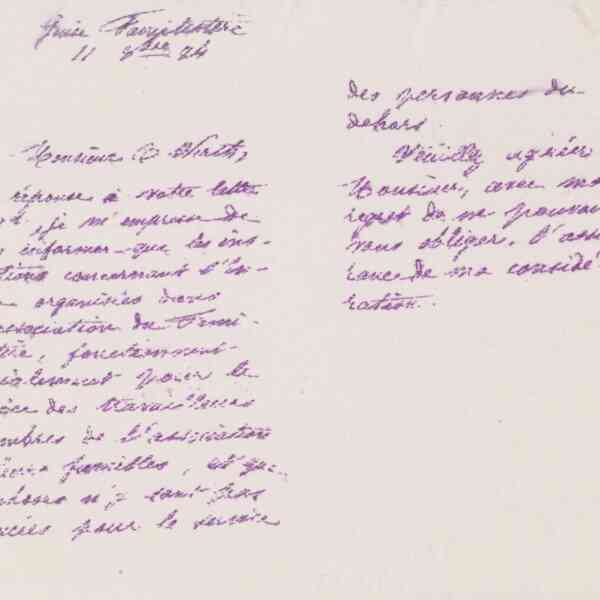 Guise Familistère
11 8bre 74
Monsieur B Wirth,
réponse à votre lettre
je m'empresse de
informer que les ins-
tions concernant l'en-
organisées dans
association du Fami-
tère, fonctionnent
pour le
des travailleurs
mbres de l'association
leurs familles, et que
n'y sont pas
pour le service
des personnes du
dehors.
Veuillez agréer
Monsieur, avec mon
regret de ne pouvoir
vous obliger, l'assu
rance de ma considé
ration.